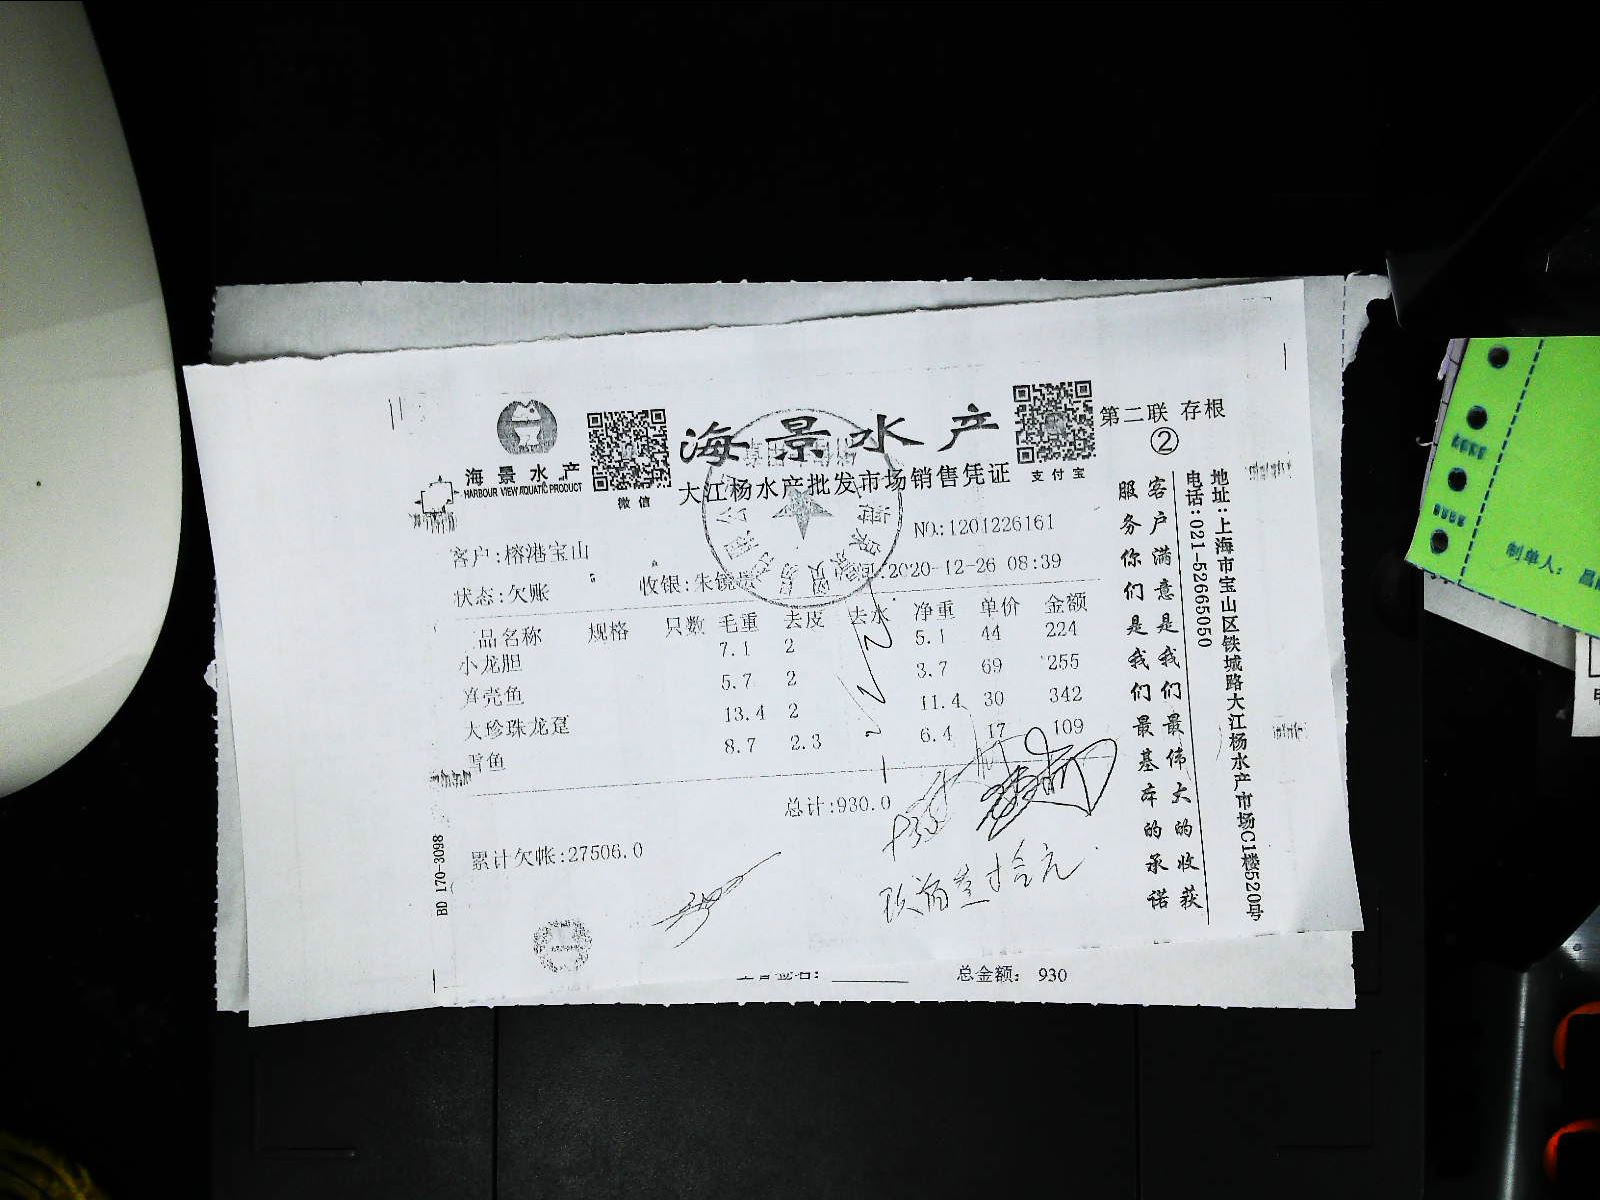 海景水产
HARBOUR VIEW AQUATIC PRODUCT
微信
海景水产
大江杨水产批发市场销售凭证
支付宝
第二联 存根
②
NO.:1201226161
客户:榕港宝山
状态:欠账
收银:朱镜
:2020-12-26 08:39
品名称 规格 只数 毛重 去皮 去水 净重 单价 金额
小龙胆 7.1 2 5.1 44 224
笋壳鱼 5.7 2 3.7 69 255
大珍珠龙趸 13.4 2 11.4 30 342
鱼 8.7 2.3 6.4 17 109
总计:930.0
累计欠帐:27506.0
玖佰叁拾元
BD 170-3098
客户满意是我们最伟大的收获
服务你们是我们最基本的承诺
地址:上海市宝山区铁城路大江杨水产市场C1楼520号
电话:021-52665050
总金额: 930
制单人: